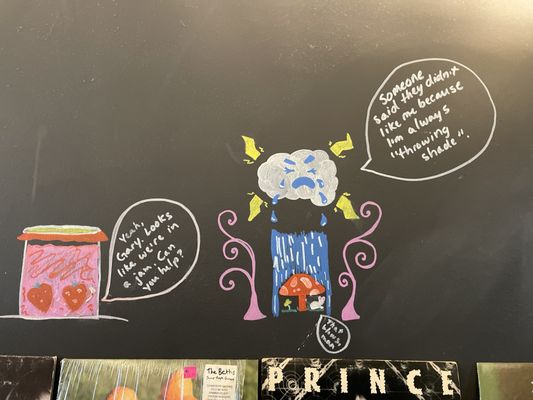 Someone
said they didn't
like me because
I'm always
"throwing
shade".
Yeah,
Gary. Looks
like we're in
a jam. Can
you help?
that
blows
man
The Beths
PRINCE